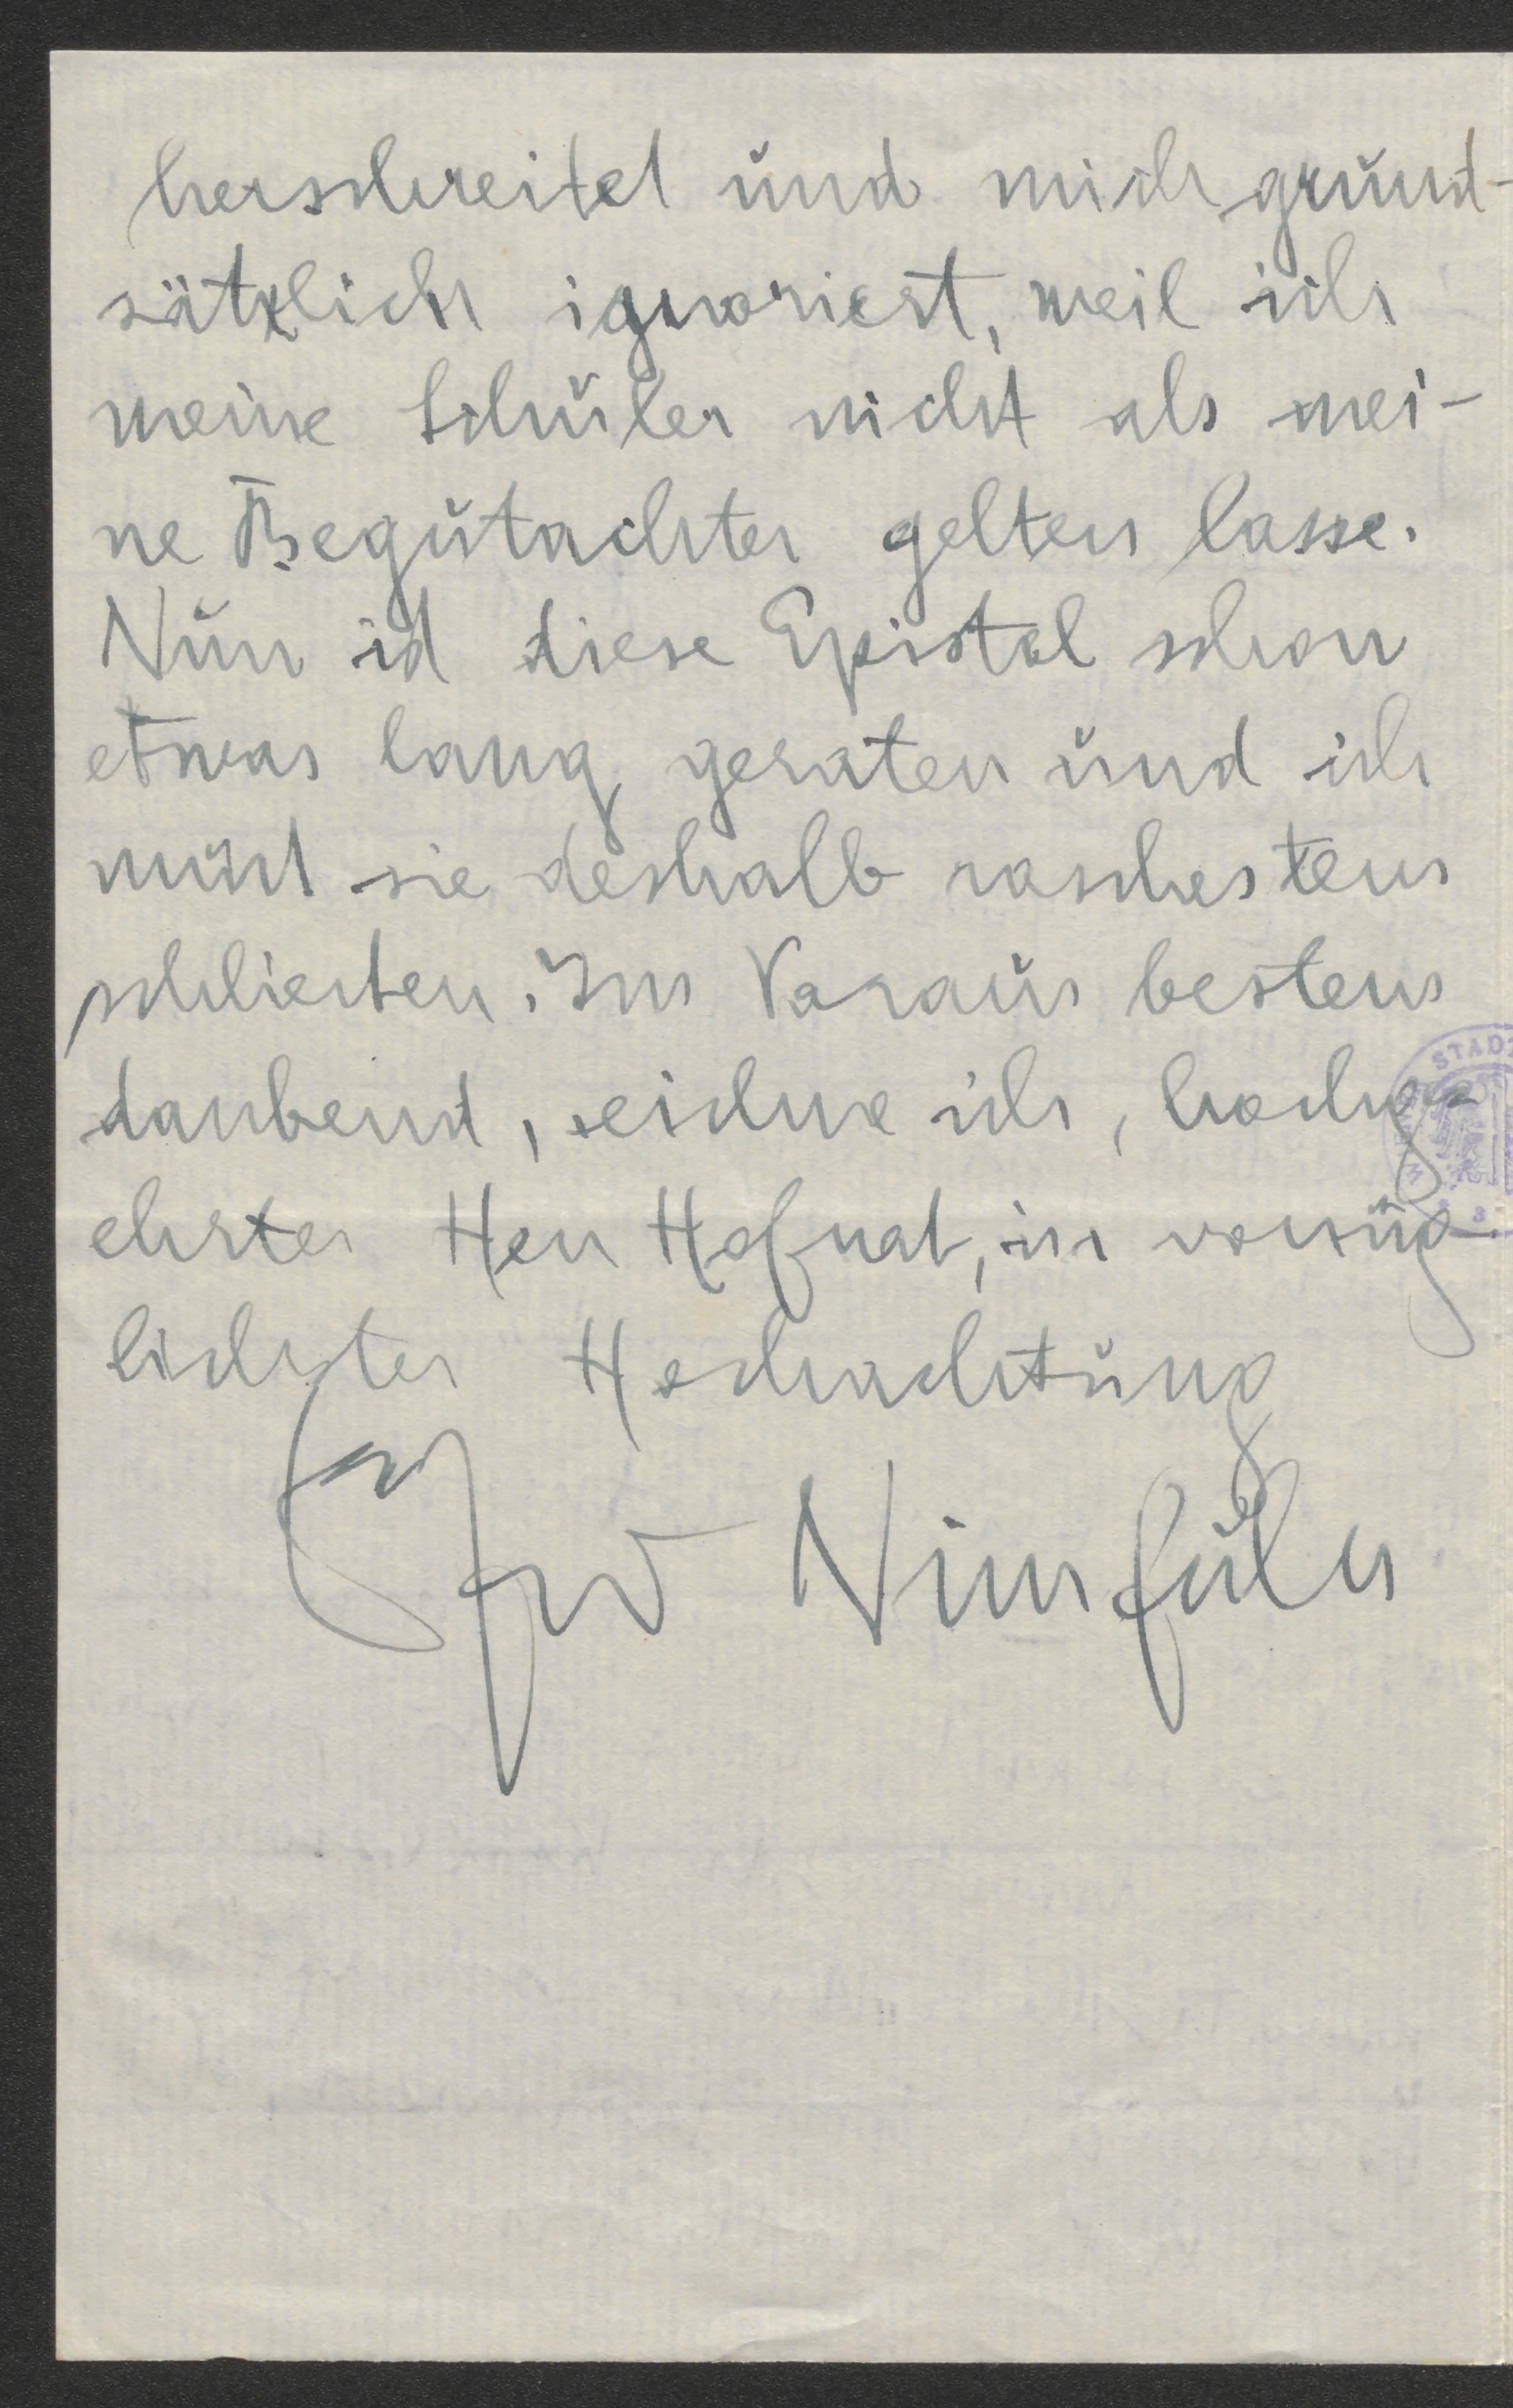 herschreitet und mich grund-
sätzlich ignoriert, weil ich
meine Schüler nicht als mei-
ne Begutachter gelten lasse.
Nun ist diese Epistel schon
etwas lang geraten und ich
muss sie deshalb raschestens
schliessen. Im Voraus bestens
dankend, zeichne ich, hochge-
ehrter Herr Hofrat, in vorzüg-
lichster Hochachtung
Nimführ
STADT